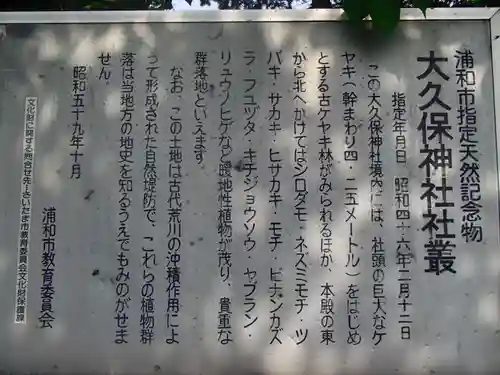 浦和市指定天然記念物
大久保神社社叢
指定年月日 昭和四十六年二月十二日
この大久保神社境内には、社頭の巨大なケ
ヤキ（幹まわり四・二五メートル）をはじめ
とする古ケヤキ林がみられるほか、本殿の東
から北へかけてはシロダモ・ネズミモチ・ツ
バキ・サカキ・ヒサカキ・モチ・ビナンカズ
ラ・フユヅタ・キチジョウソウ・ヤブラン・
リュウノヒゲなど暖地性植物が茂り、貴重な
群落地といえます。
なお、この土地は古代荒川の沖積作用によ
って形成された自然堤防で、これらの植物群
落は当地方の地史を知るうえでものがせま
せん。
昭和五十九年十月
浦和市教育委員会
文化財に関する問合せ先 さいたま市教育委員会文化財保護課